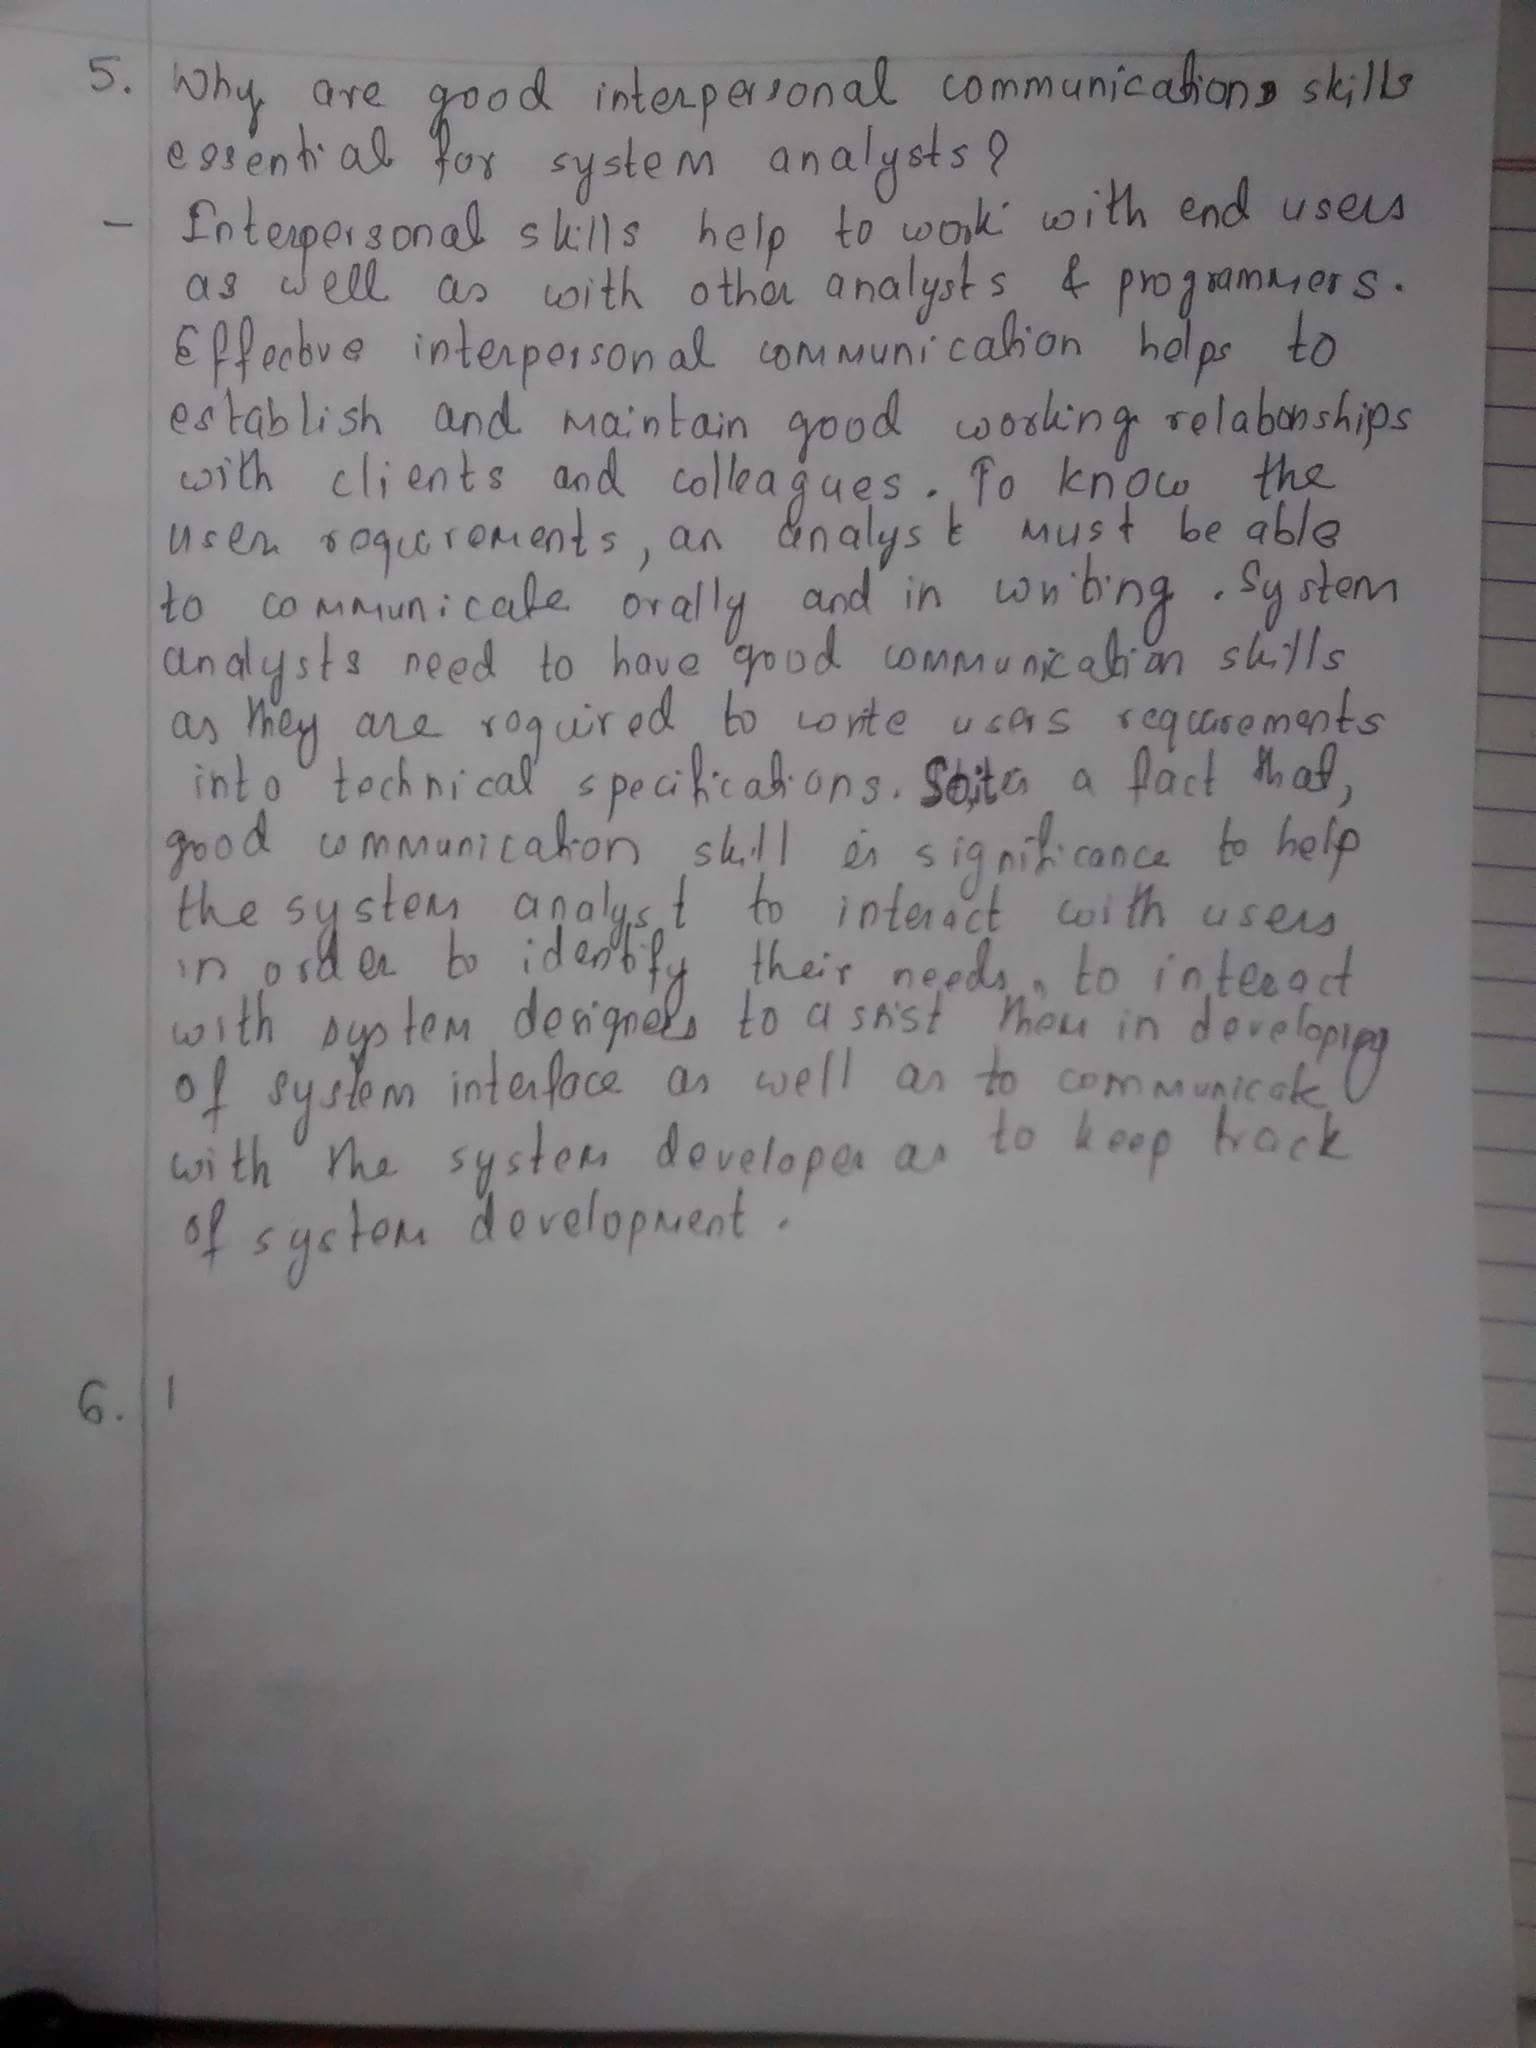 5. Why are good interpersonal communications skills
essential for system analysts?
- Interpersonal skills help to work with end users
as well as with other analysts & programmers.
Effective interpersonal communication helps to
establish and maintain good working relationships
with clients and colleagues. To know the
user requirements, an analyst must be able
to communicate orally and in writing. System
analysts need to have good communication skills
as they are required to write users requirements
into technical specifications. So, it is a fact that,
good communication skill is significance to help
the system analyst to interact with users
in order to identify their needs, to interact
with system designers to assist them in developing
of system interface as well as to communicate
with the system developer as to keep track
of system development.
6. I